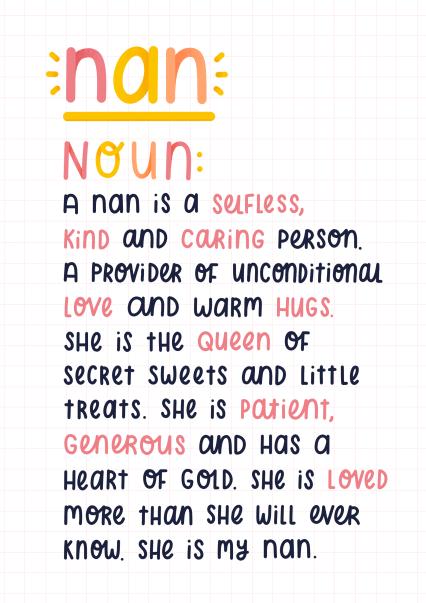 nan
NOUN:
A nan is a selfless,
kind and caring person.
A provider of unconditional
love and warm hugs.
She is the Queen of
secret sweets and little
treats. She is patient,
generous and has a
heart of gold. She is loved
more than she will ever
know. She is my nan.